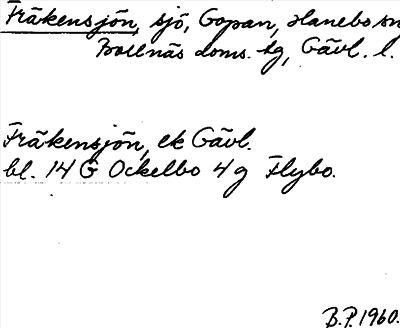 Fräkensjön, sjö, Gopan, Hanebo sn
Bollnäs doms. tg, Gävl. l.
Fräkensjön, ek Gävl.
bl. 14 G Ockelbo 4 g Flybo.
B.P. 1960.